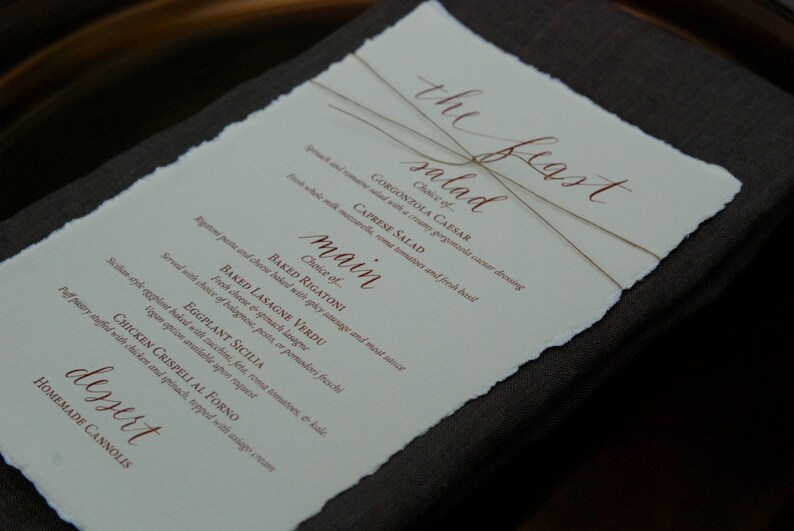 the feast
salad
Choice of...
Gorgonzola Caesar
Spinach and romaine salad with a creamy gorgonzola caesar dressing
Caprese Salad
Fresh whole milk mozzarella, roma tomatoes and fresh basil
main
Choice of...
Baked Rigatoni
Rigatoni pasta and cheese baked with spicy sausage and meat sauce
Baked Lasagne Verdu
Fresh cheese & spinach lasagne
Served with choice of bolognese, pesto, or pomodori freschi
Eggplant Sicilia
Sicilian-style eggplant baked with zucchini, feta, roma tomatoes, & kale.
Vegan option available upon request
Chicken Crispeli al Forno
Puff pastry stuffed with chicken and spinach, topped with asiago cream
dessert
Homemade Cannolis